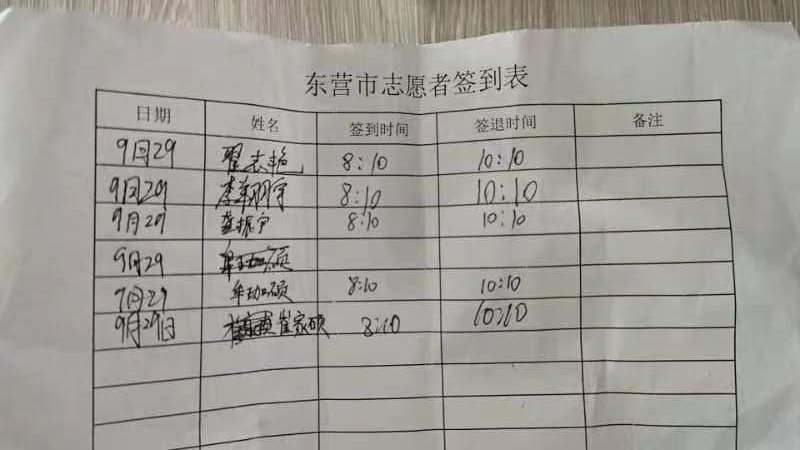 东营市志愿者签到表
日期 姓名 签到时间 签退时间 备注
9月29 翟志艳 8:10 10:10
9月29 李翔宇 8:10 10:10
9月29 振宁 8:10 10:10
9月29 硕
9月29 牟劝硕 8:10 10:10
9月29日 崔家硕 8:10 10:10